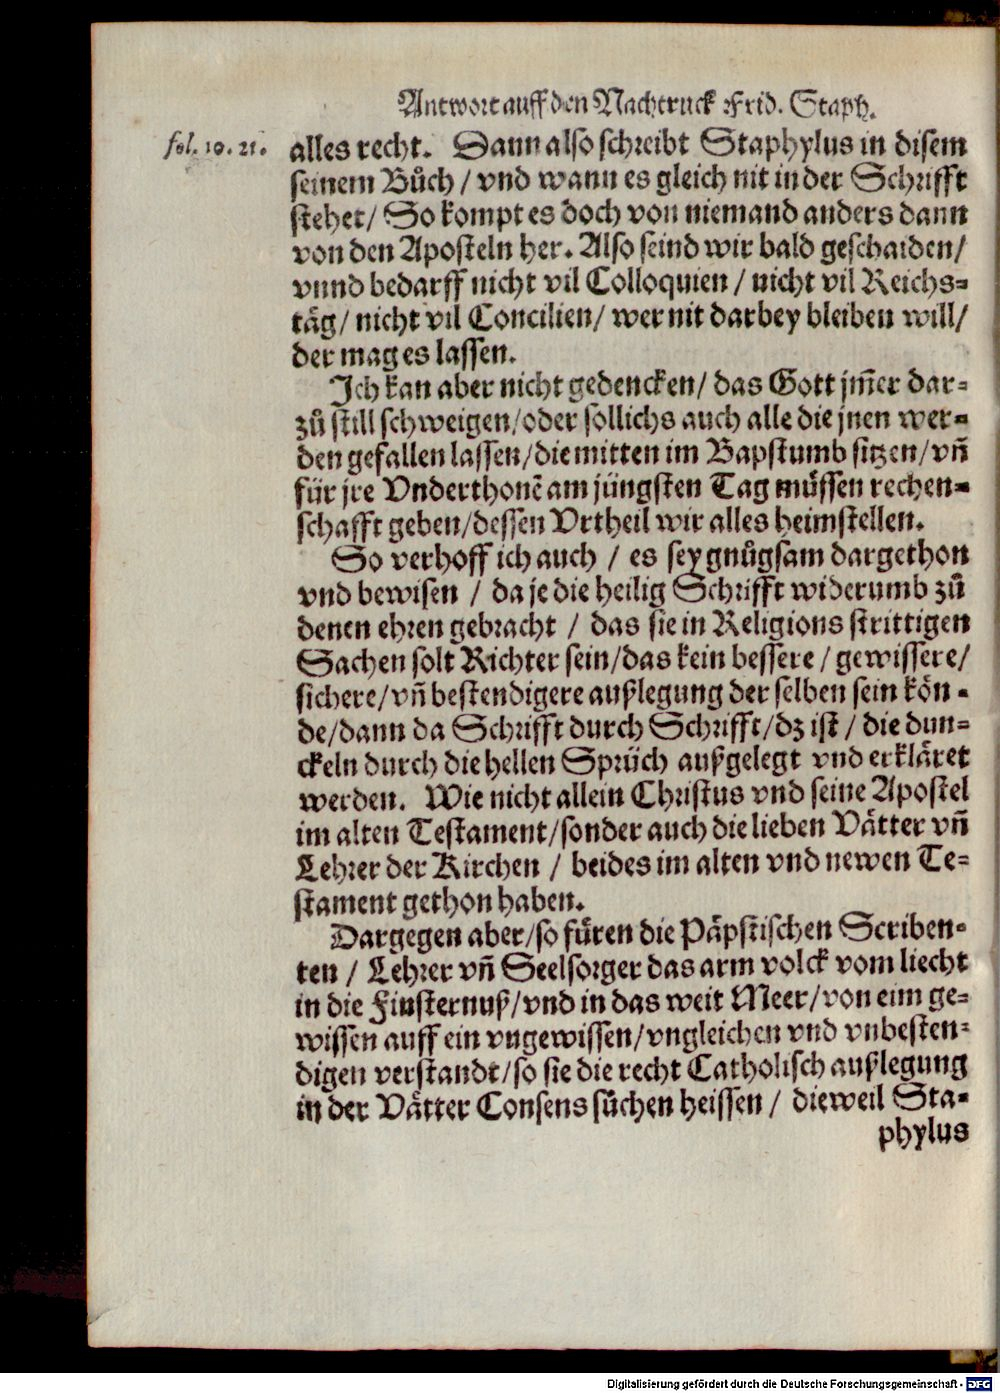 Antwort auff den Nachtruck Frid. Staph.
fol. 10. 21.
alles recht. Dann also schreibt Staphylus in disem
seinem Bůch / vnd wann es gleich nit in der Schrifft
stehet / So kompt es doch von niemand anders dann
von den Aposteln her. Also seind wir bald geschaiden /
vnnd bedarff nicht vil Colloquien / nicht vil Reichs=
täg / nicht vil Concilien / wer nit darbey bleiben will /
der mag es lassen.
Ich kan aber nicht gedencken / das Gott jm̃er dar=
zů still schweigen / oder sollichs auch alle die jnen wer=
den gefallen lassen / die mitten im Bapstumb sitzen / vñ
für jre Vnderthonẽ am jüngsten Tag müssen rechen=
schafft geben / dessen Vrtheil wir alles heimstellen.
So verhoff ich auch / es sey gnůgsam dargethon
vnd bewisen / da je die heilig Schrifft widerumb zů
denen ehren gebracht / das sie in Religions strittigen
Sachen solt Richter sein / das kein bessere / gewissere /
sichere / vñ bestendigere außlegung der selben sein kön=
de / dann da Schrifft durch Schrifft / dz ist / die dun=
ckeln durch die hellen Sprüch außgelegt vnd erkläret
werden. Wie nicht allein Christus vnd seine Apostel
im alten Testament / sonder auch die lieben Vätter vñ
Lehrer der Kirchen / beides im alten vnd newen Te=
stament gethon haben.
Dargegen aber / so füren die Päpstischen Scriben=
ten / Lehrer vñ Seelsorger das arm volck vom liecht
in die Finsternuß / vnd in das weit Meer / von eim ge=
wissen auff ein vngewissen / vngleichen vnd vnbesten=
digen verstandt / so sie die recht Catholisch außlegung
in der Vätter Consens sůchen heissen / dieweil Sta=
phylus
Digitalisierung gefördert durch die Deutsche Forschungsgemeinschaft - DFG